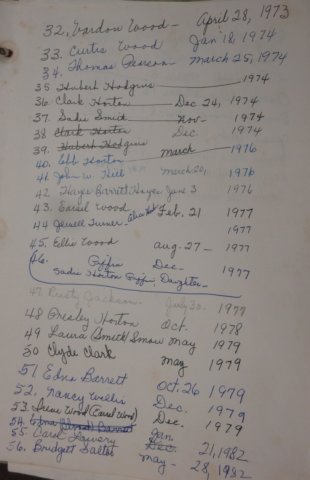 32. Vardon Wood - April 28, 1973
33. Curtis Wood Jan 18, 1974
34. Thomas Pearson - March 25, 1974
35. Hubert Hodgins 1974
36. Clark Horton Dec 24, 1974
37. Sadie Smith Nov - 1974
38 Clark Horton Dec. 1974
39. Hubert Hodgins
40. Ebb Horton March 1976
41 John W. Hill March 20, 1976
42 Hays Barrett Hayes June 3 1976
43. Earsel Wood Feb. 21 1977
44 Jewell Turner - 1977
45. Ellis Wood aug. 27 - 1977
46. Griffin Dec - 1977
Sadie Horton Griffin, Daughter
47 Rusty Jackson July 30. 1977
48 Presley Horton Oct. 1978
49 Laura (Smith) Smow May 1979
50 Clyde Clark May 1979
51 Edna Barrett Oct. 26 1979
52. Nancy Willis Dec. 1979
53. Irene Wood (Carol Wood) Dec. 1979
54. Edna Barrett Jan.
55. Carol Lowery Dec. 21, 1982
56. Bridgett Salter May - 28, 1982